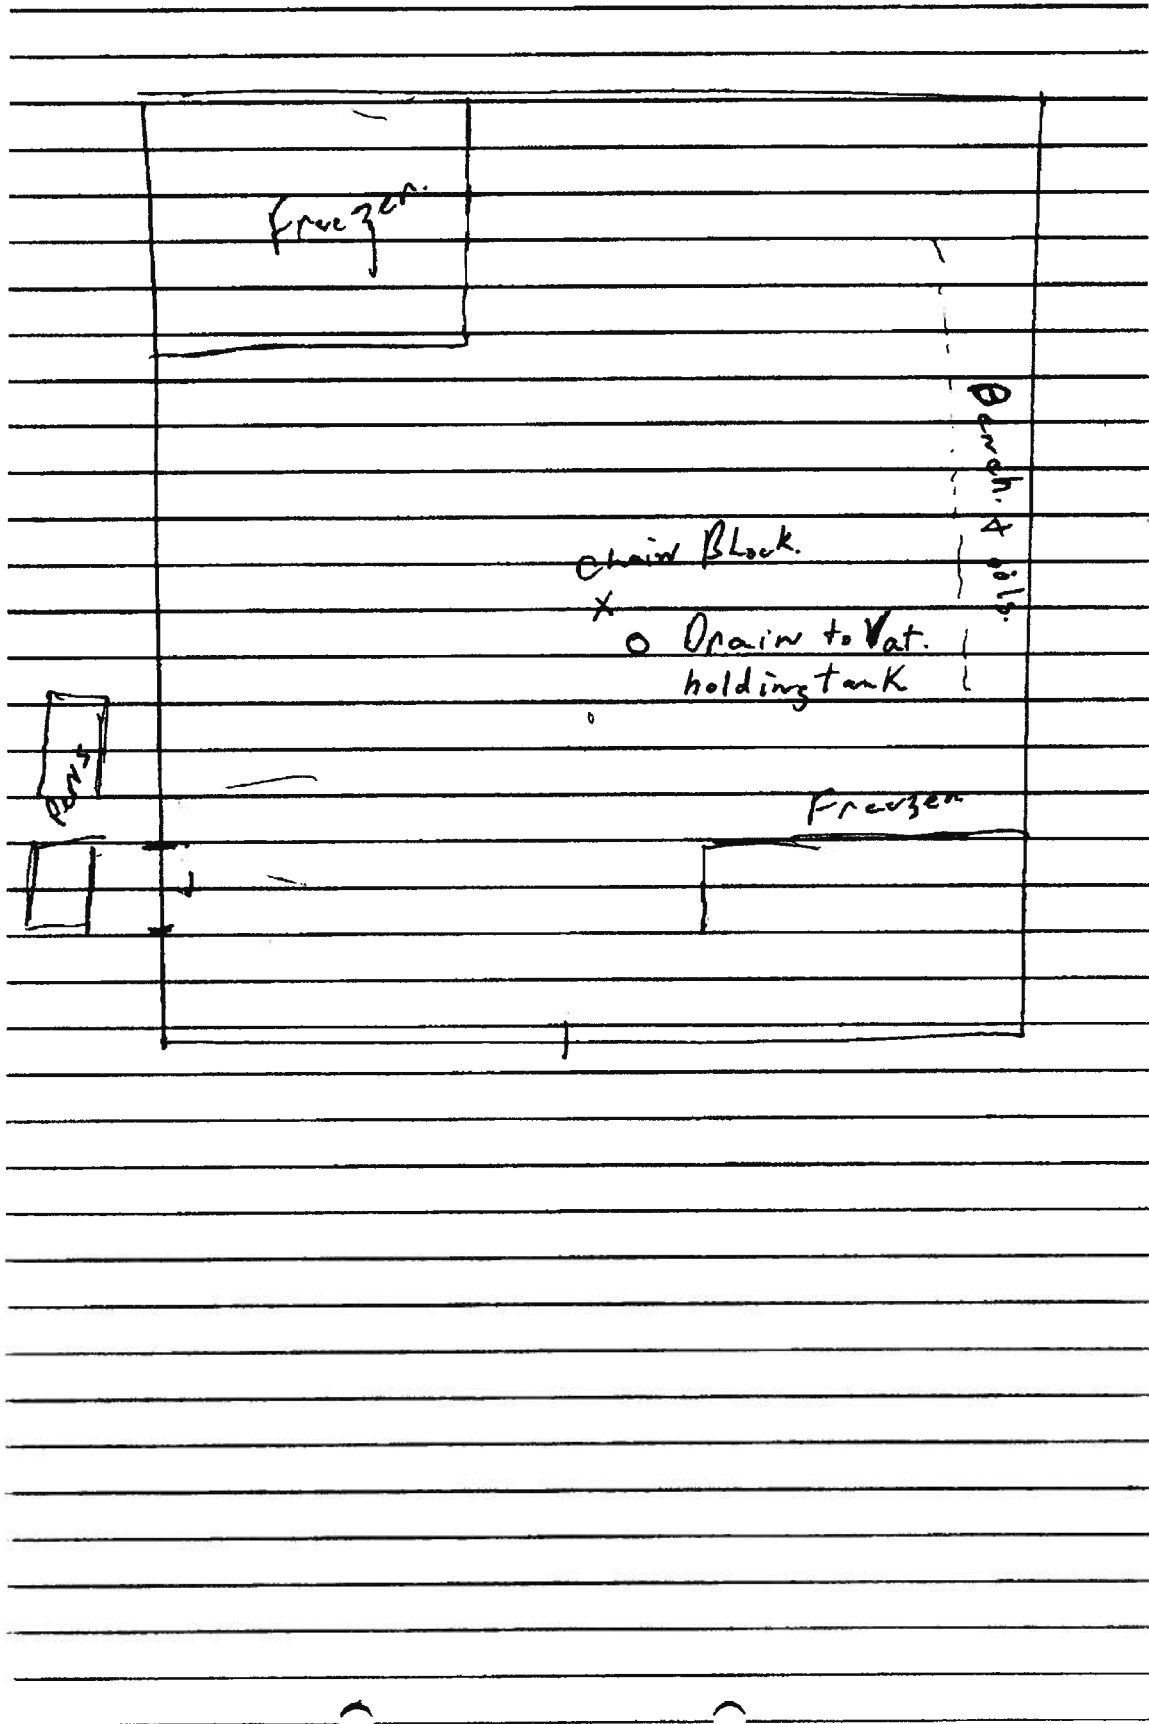 Freezer.
Bench. 4 oils.
Chain Block.
X
O Drain to Vat.
holding tank
Pens
Freezer